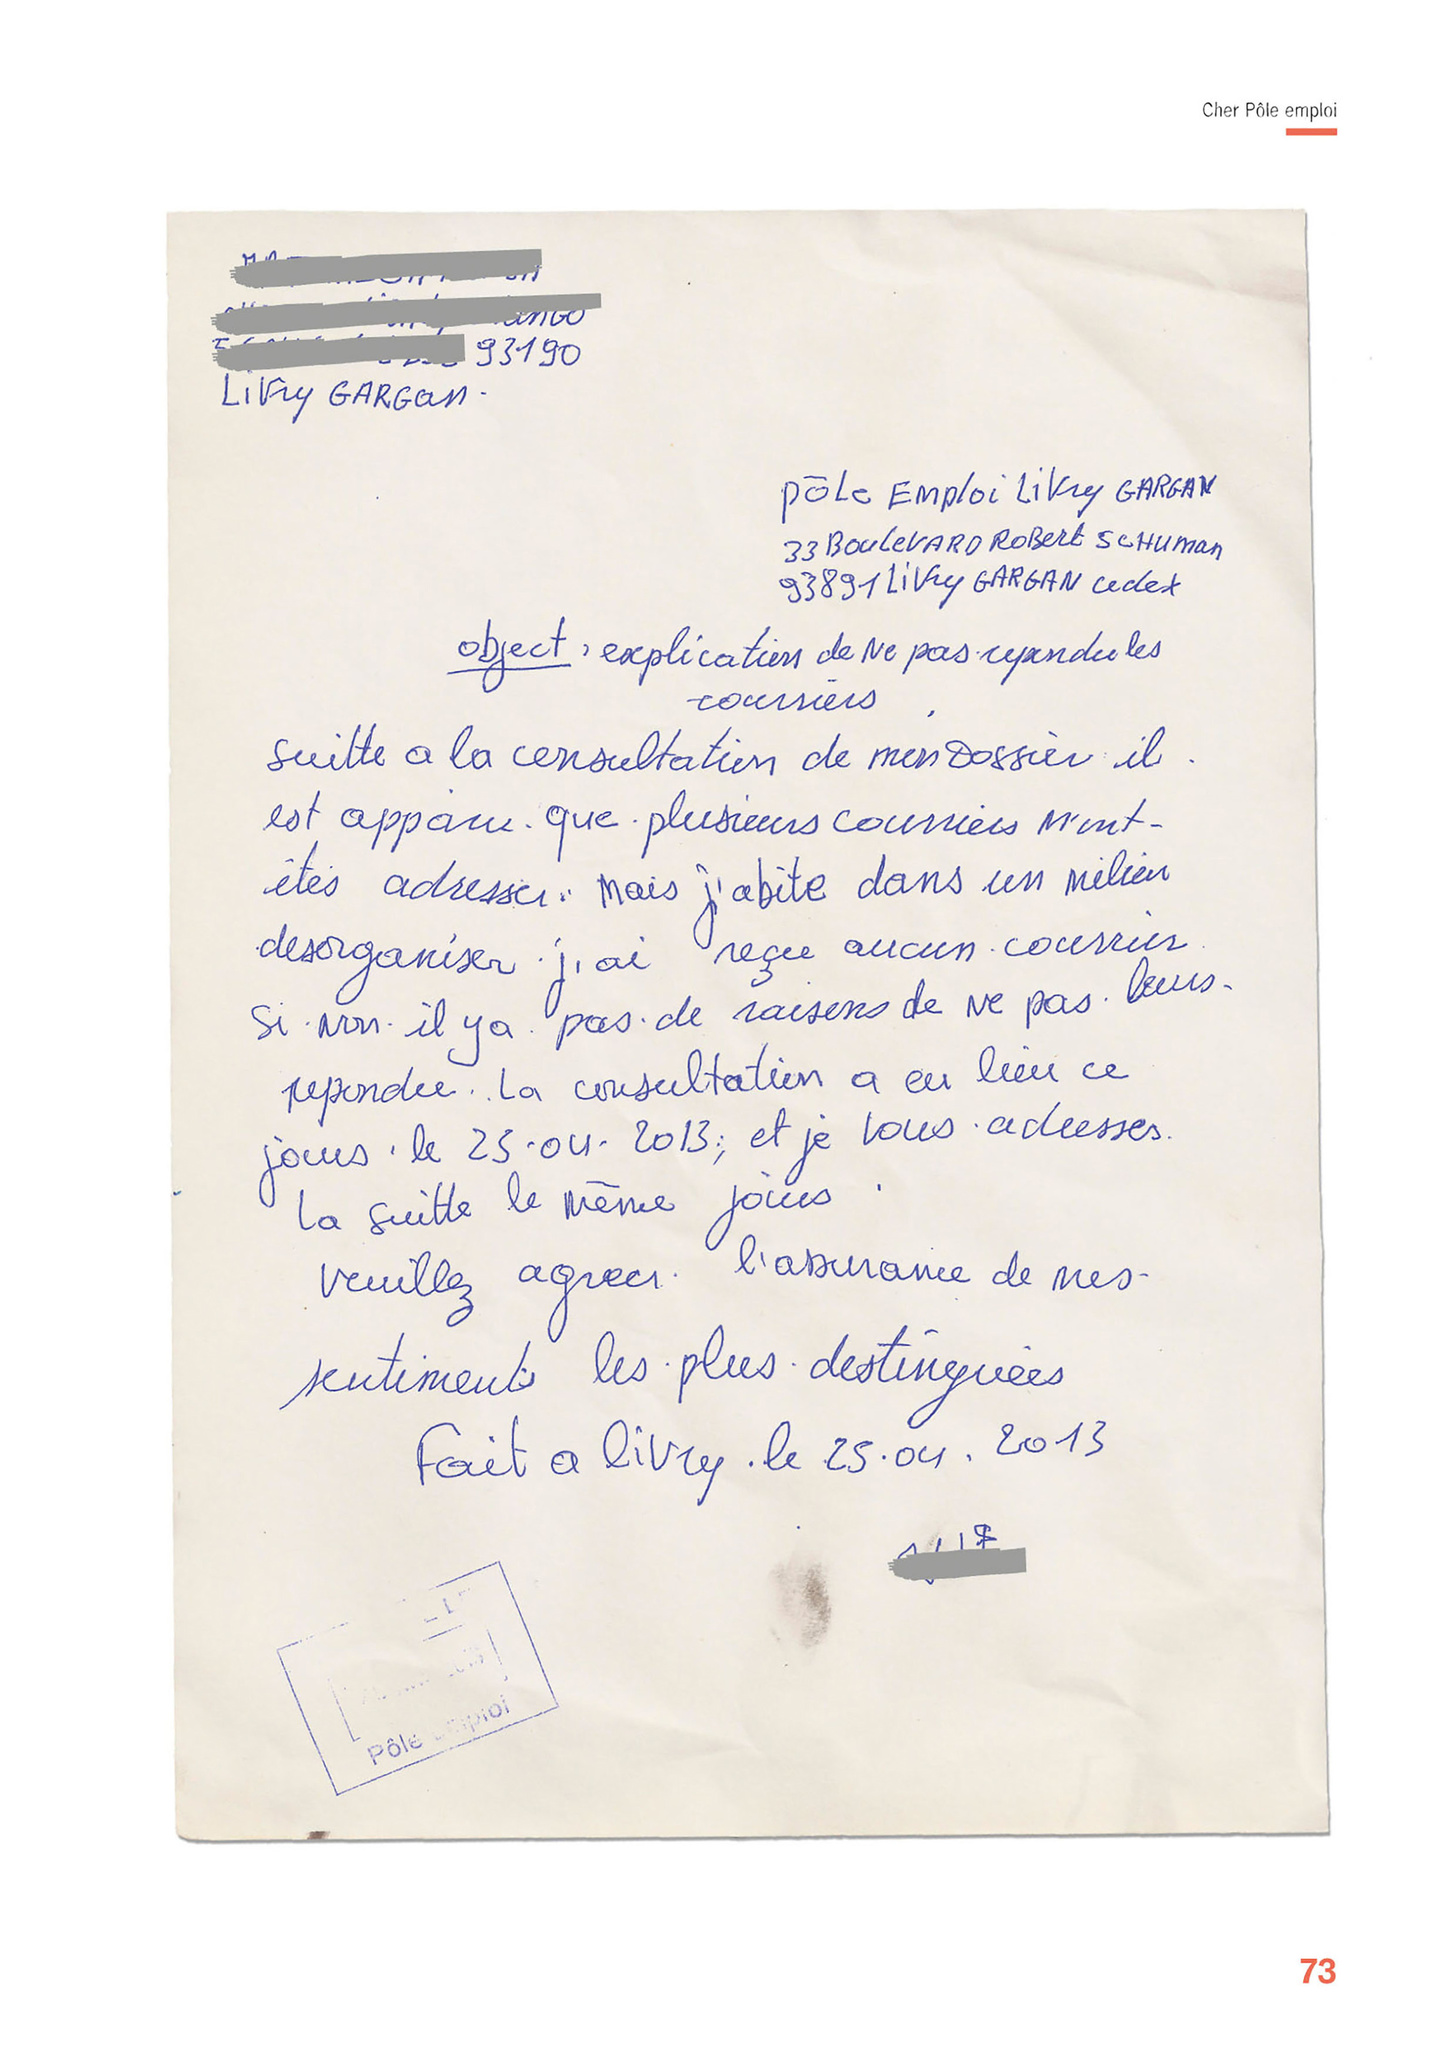 Cher Pôle emploi
93190
Livry GARGan.
pôle Emploi Livry GARGAN
33 Boulevard Robert Schuman
93891 Livry GARGAN cedex
object : explication de ne pas rependu les
courriers
suitte a la consultation de mon Dossier il
est apparu que plusieurs courriers m'ont
étés adresser. Mais j'abite dans un milieu
desorganiser j'ai reçu aucun courrier
Si non il y a pas de raisons de ne pas leurs
repondre. La consultation a eu lieu ce
jours le 25.04.2013; et je vous adresses
La suitte le même jours.
Veuillez agreer l'assurance de mes
sentiments les plus destinguées
Fait a livry le 25.04.2013
Pôle emploi
73